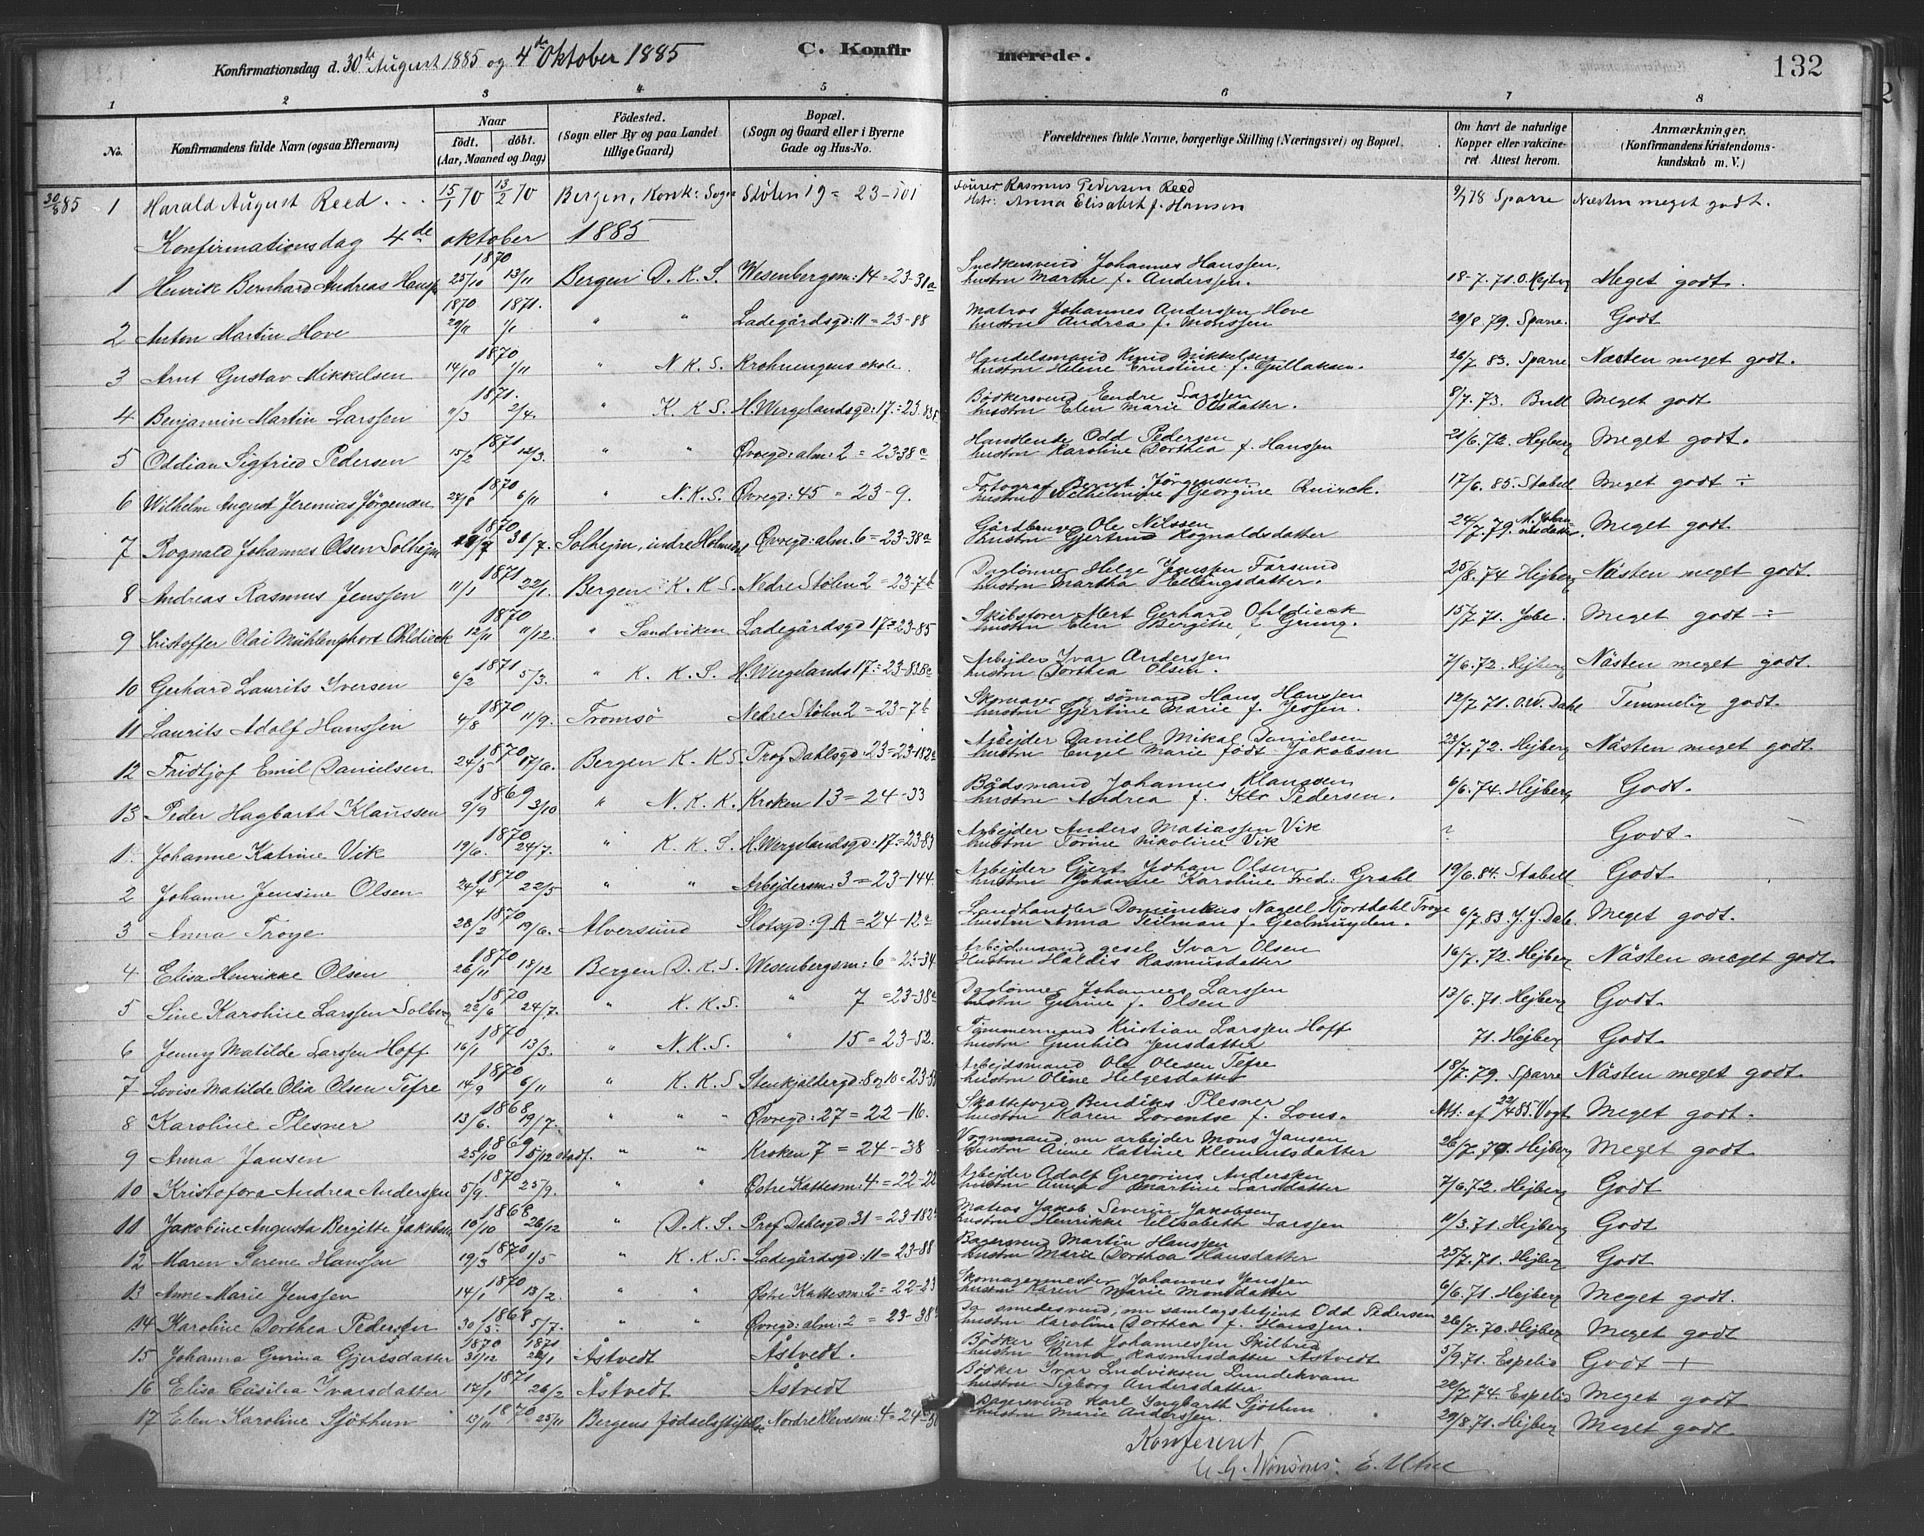 Konfirmationsdag d. 30te August 1885 og 4de Oktober 1885
C. Konfirmerede.
132
1 2 3 4 5 6 7 8
No.
Konfirmandens fulde Navn (ogsaa Efternavn)
Naar
født. døbt.
(Aar, Maaned og Dag)
Fødested.
(Sogn eller By og paa Landet tillige Gaard)
Bopæl.
(Sogn og Gaard eller i Byerne Gade og Hus-No.
Forældrenes fulde Navne, borgerlige Stilling (Næringsvei) og Bopæl.
Om havt de naturlige Kopper eller vakcineret. Attest herom.
Anmærkninger.
(Konfirmandens Kristendomskundskab m. V.)
30/8 85 1 Harald August Reed 15/1 70 13/2 70 Bergen, Korsk: Sogn Stølen 19 = 23-101 Rasmus Pedersen Reed Anna Elisabet f. Hansen 78 Sparre Næsten meget godt.
Konfirmationsdag 4de oktober 1885
1 Henrik Bernhard Andreas 1870 25/10 13/11 Bergen D. K. S. Wesenbergsm: 14 = 23-31a Snedkersvend Johannes Hanssen, hustru Marthe f. Anderssen. 18-7.71. O. Hejberg Meget godt.
2 Anton Martin Hove 1870 29/11 1871. 1/1 " " Ladegårdsgd: 11 = 23-88 Matros Johannes Anderssen Hove hustru Andrea f. Monssen 29/8.79. Sparre. Godt
3 Arnt Gustav Mikkelsen 1870 14/10 /11 " N. K. S. Krohnengens skole. Handelsmand Knud Mikkelsen hustru Helene Ernstine f. Gullaksen. 26/7.83. Sparre Næsten meget godt.
4 Benjamin Martin Larssen 1871. 11/3 2/4. " K. K. S. H. Wergelandsgd: 17. = 23.83 Bødkersvend Endre Larssen hustru Elen Marie Olsdatter. 8/7.73. Bull Meget godt
5 Oddian Sigfried Pedersen 1871 15/2 12/3. " " Øvregd: alm: 2 = 23-38c Handlende Odd Pedersen hustru Karoline Dorthea f. Hanssen 21/6.72. Hejberg Meget godt.
6 Wilhelm August Jeremias Jörgensen 1870 6/11 " N. K. S. Øvregd: 45 = 23-9. Fotograf Bernt Jörgensen hustru Wilhelmine Georgine 17/6.85. Stabell Meget godt ÷
7 Rognald Johannes Olsen Solhejm 1870 /7 30/7. Solhejm, indre Holmedal Øvregd: alm. 6 = 23-38a Gårdbruger Ole Nilssen hustru Gjertrud Rognaldsdatter 24/7.79. Meget godt
8 Andreas Rasmus Jenssen 1871 11/1 22/1. Bergen K. K. S. Nedre Stølen 2 = 23-7b Daglönner Helge Jenssen Farsund hustru Martha Ellingsdatter. 25/8.74 Hejberg Nästen meget godt.
9 Cristoffer Olai Mühlenphort Ohldieck 1870 12/11 11/12. " Sandviken Ladegårdsgd 17a = 23-85 Skibsfører Mert Gerhard Ohldieck hustru Elen Bergitte 15/7.71. Jebe. Meget godt ÷
10 Gerhard Laurits Iversen 1871 6/2 5/3. " K. K. S H. Wergelands 17 = 23-83 Arbejder Ivar Anderssen hustru Dorthea Olsen. 7/6.72. Hejberg Nästen meget godt.
11 Laurits Adolf Hanssen 1870 4/8 11/9. Tromsø Nedre Stølen 2 = 23-7b Skomager og sömand Hans Hanssen hustru Gjertine Marie f. Jessen. 12/7.71. O.W. Dahl Temmelig godt.
12 Fridtjof Emil Danielsen 1870 24/5 17/6. Bergen K. K. S. Prof Dahlsgd: 23 = 23-182 Arbejder Daniel Mikal Danielsen hustru Engel Marie født Jakobsen 23/7.72. Hejberg Nästen meget godt.
13 Peder Hagbarth Klaussen 1869 9/9 3/10 " N. K. K. Kroken 13 = 24-33 Bådsmand Johannes Klaussen hustru Andrea f. Pedersen. 6/6.74. Hejberg Godt.
1. Johanne Katrine Vik 1870 19/6. 24/7. " K. K. S. H. Wergelandsgd: 17 = 23-83 Arbejder Anders Matiassen Vik hustru Torine Nikoline Vik ? Godt.
2 Johanne Jensine Olsen 1870 24/4 22/5 " " Arbejdersm: 3 = 23-144. Arbejder Gjert Johan Olsen hustru Johanne Karoline Fred: Grahl 19/6.84. Stabell Godt
3 Anna Troye 1870 28/2 19/6. Alversund Slotsgd: 9 A = 24-12a Landhandler Dominikus Nagell Hjortdahl Troye hustru Anna f. 6/7.83. J. J. Meget godt.
4 Elisa Henrikke Olsen 1870 26/11 18/12 Bergen D. K. S. Wesenbergsm: 6 = 23-34 Arbejdsmand Ivar Olsen hustru Haldis Rasmusdatter 16/7.72. Hejberg Nästen meget godt
5 Sine Karoline Larssen Solberg 1870 22/6 24/7. " K. K. S. " 7 = 23-38 Daglönner Johannes Larssen hustru Gurine f. Olsen 13/6.71. Hejberg Godt.
6 Jenny Matilde Larssen Hoff 1870 16/1 13/3. " N. K. S. " 15 = 23-52. Tömmermand Kristian Larssen Hoff hustru Gunhild Jensdatter 71. Hejberg Godt.
7 Lovise Matilde Olia Olsen Tefre 1870 14/9 6/11 " K. K. S Stenkjelergd: 8 og 10 = 23 Arbejdsmand Ole Olesen Tefre hustru Oline Helgesdatter 18/7.79. Sparre Nästen meget godt.
8 Karoline Plesner 1868 13/6. 19/7. " " Øvregd: 27 = 22-16. Skattefoged Bendiks Plesner hustru Karen Lorentse f. Att: af 22/4 85. Vogt Meget godt.
9 Anna Jansen 1869 25/10 5/12 " " Kroken 7 = 24-38 Vognmand, nu arbejder Mons Jansen hustru Anne Katrine Klementsdatter 26/7.70. Hejberg Meget godt.
10 Kristofora Andrea Anderssen 1870 5/9. 25/9. " " Østre Kattesm: 4 = 22-22 Arbejder Adolf Gregorius Anderssen hustru Anna Martine Larsdatter 7/6.72. Hejberg Godt
11 Jakobine Augusta Bergitte Jakobsen 1868 10/10 26/12 " D. K. S. Prof Dahlsgd 31 = 23-182 Matros Jakob Severin Jakobsen hustru Henrikke Elisabeth Larssen 11/3.71. Hejberg Godt
12 Maren Serene Hanssen 1870 19/3 1/5 " K. K. S. Ladegårdsgd: 11 = 23-88 Bagersvend Martin Hanssen hustru Marie Dorthea Hansdatter 25/7.71. Hejberg Godt
13 Anne Marie Jenssen 1870 14/1 13/2. " " Østre Kattesm: 2 = 22-23 Skomagermester Johannes Jenssen hustru Karen Marie Monsdatter 6/6.71. Hejberg Meget godt.
14 Karoline Dorthea Pedersen 1868 30/5. 5/7. " " Øvregd: alm: 2 = 23-38c smedesvend, nu samlagsbetjent Odd Pedersen hustru Karoline Dorthea f. Hanssen. 26/7.70. Hejberg Meget godt
15 Johanna Gurina Gjertsdatter 1870 31/12 1871 /1 Åstvedt Åstvedt. Bödker Gjert Johannessen hustru Anna Rasmusdatter Åstvedt 5/9.71. Espelid Godt +
16 Elisa Cäsilia Ivarsdatter 1871 17/1 26/2 Åstvedt Åstvedt Bödker Ivar Ludviksen Lundekvam hustru Sigborg Andersdatter. 22/7.74. Espelid Meget godt
17 Elen Karoline Sjöthun 1870 13/11 25/11 Bergens fødselsstiftelse Nordre Klevesm: 4 = 24 Bagersvend Karl Ingbarth Sjöthun hustru Marie Anderssen. 29/8.71. Hejberg Meget godt
Konfereret
E. Utne